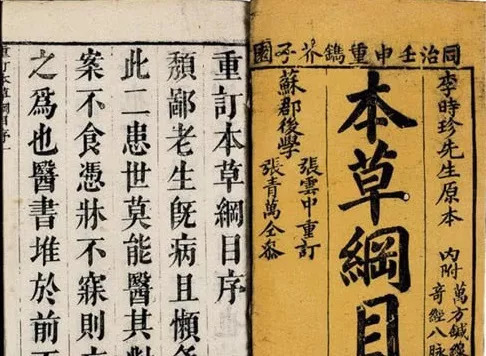 同治壬申重鐫芥子園
李時珍先生原本 內附 萬方鍼線
奇經八脉
本草綱目
蘇郡後學 張雲中重訂
張青萬仝參
重訂本草綱目序
頹鄙老生旣病且懶
此二患世莫能醫其對
案不食憑牀不寐則
之爲也醫書堆於前
重訂本草綱目序